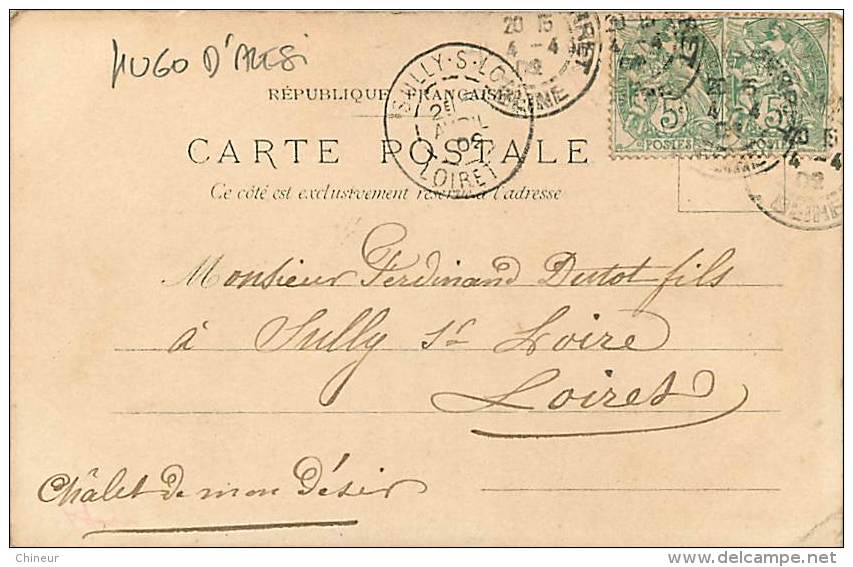 HUGO D'ALESI
RÉPUBLIQUE FRANÇAISE
CARTE POSTALE
Ce côté est exclusivement réservé à l'adresse
SULLY-S-LOIRE
AVRIL
02
LOIRET
20 15
4 -4
02
20 15
4 -4
5c 5c
POSTES POSTES
Monsieur Ferdinand Dutot fils
à Sully s/ Loire
Loiret
Châlet de mon Désir
Chineur
www.delcampe.net